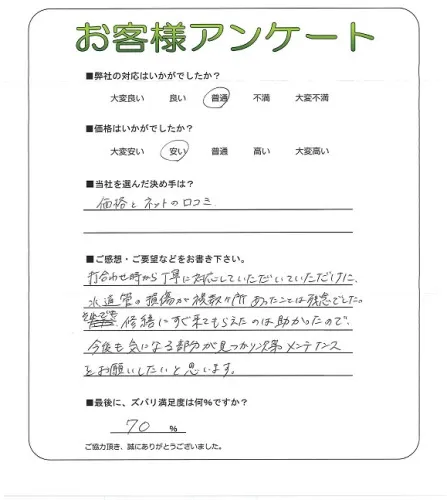 お客様アンケート
■弊社の対応はいかがでしたか？
大変良い 良い 普通 不満 大変不満
■価格はいかがでしたか？
大変安い 安い 普通 高い 大変高い
■当社を選んだ決め手は？
価格とネットの口コミ
■ご感想・ご要望などをお書き下さい。
打合わせ時から丁寧に対応していただいていただけに、
水道管の損傷が複数ヶ所あったことは残念でした。
それでも修繕にすぐ来てもらえたのは助かったので、
今後も気になる部分が見つかり次第メンテナンス
をお願いしたいと思います。
■最後に、ズバリ満足度は何%ですか？
70 %
ご協力頂き、誠にありがとうございました。